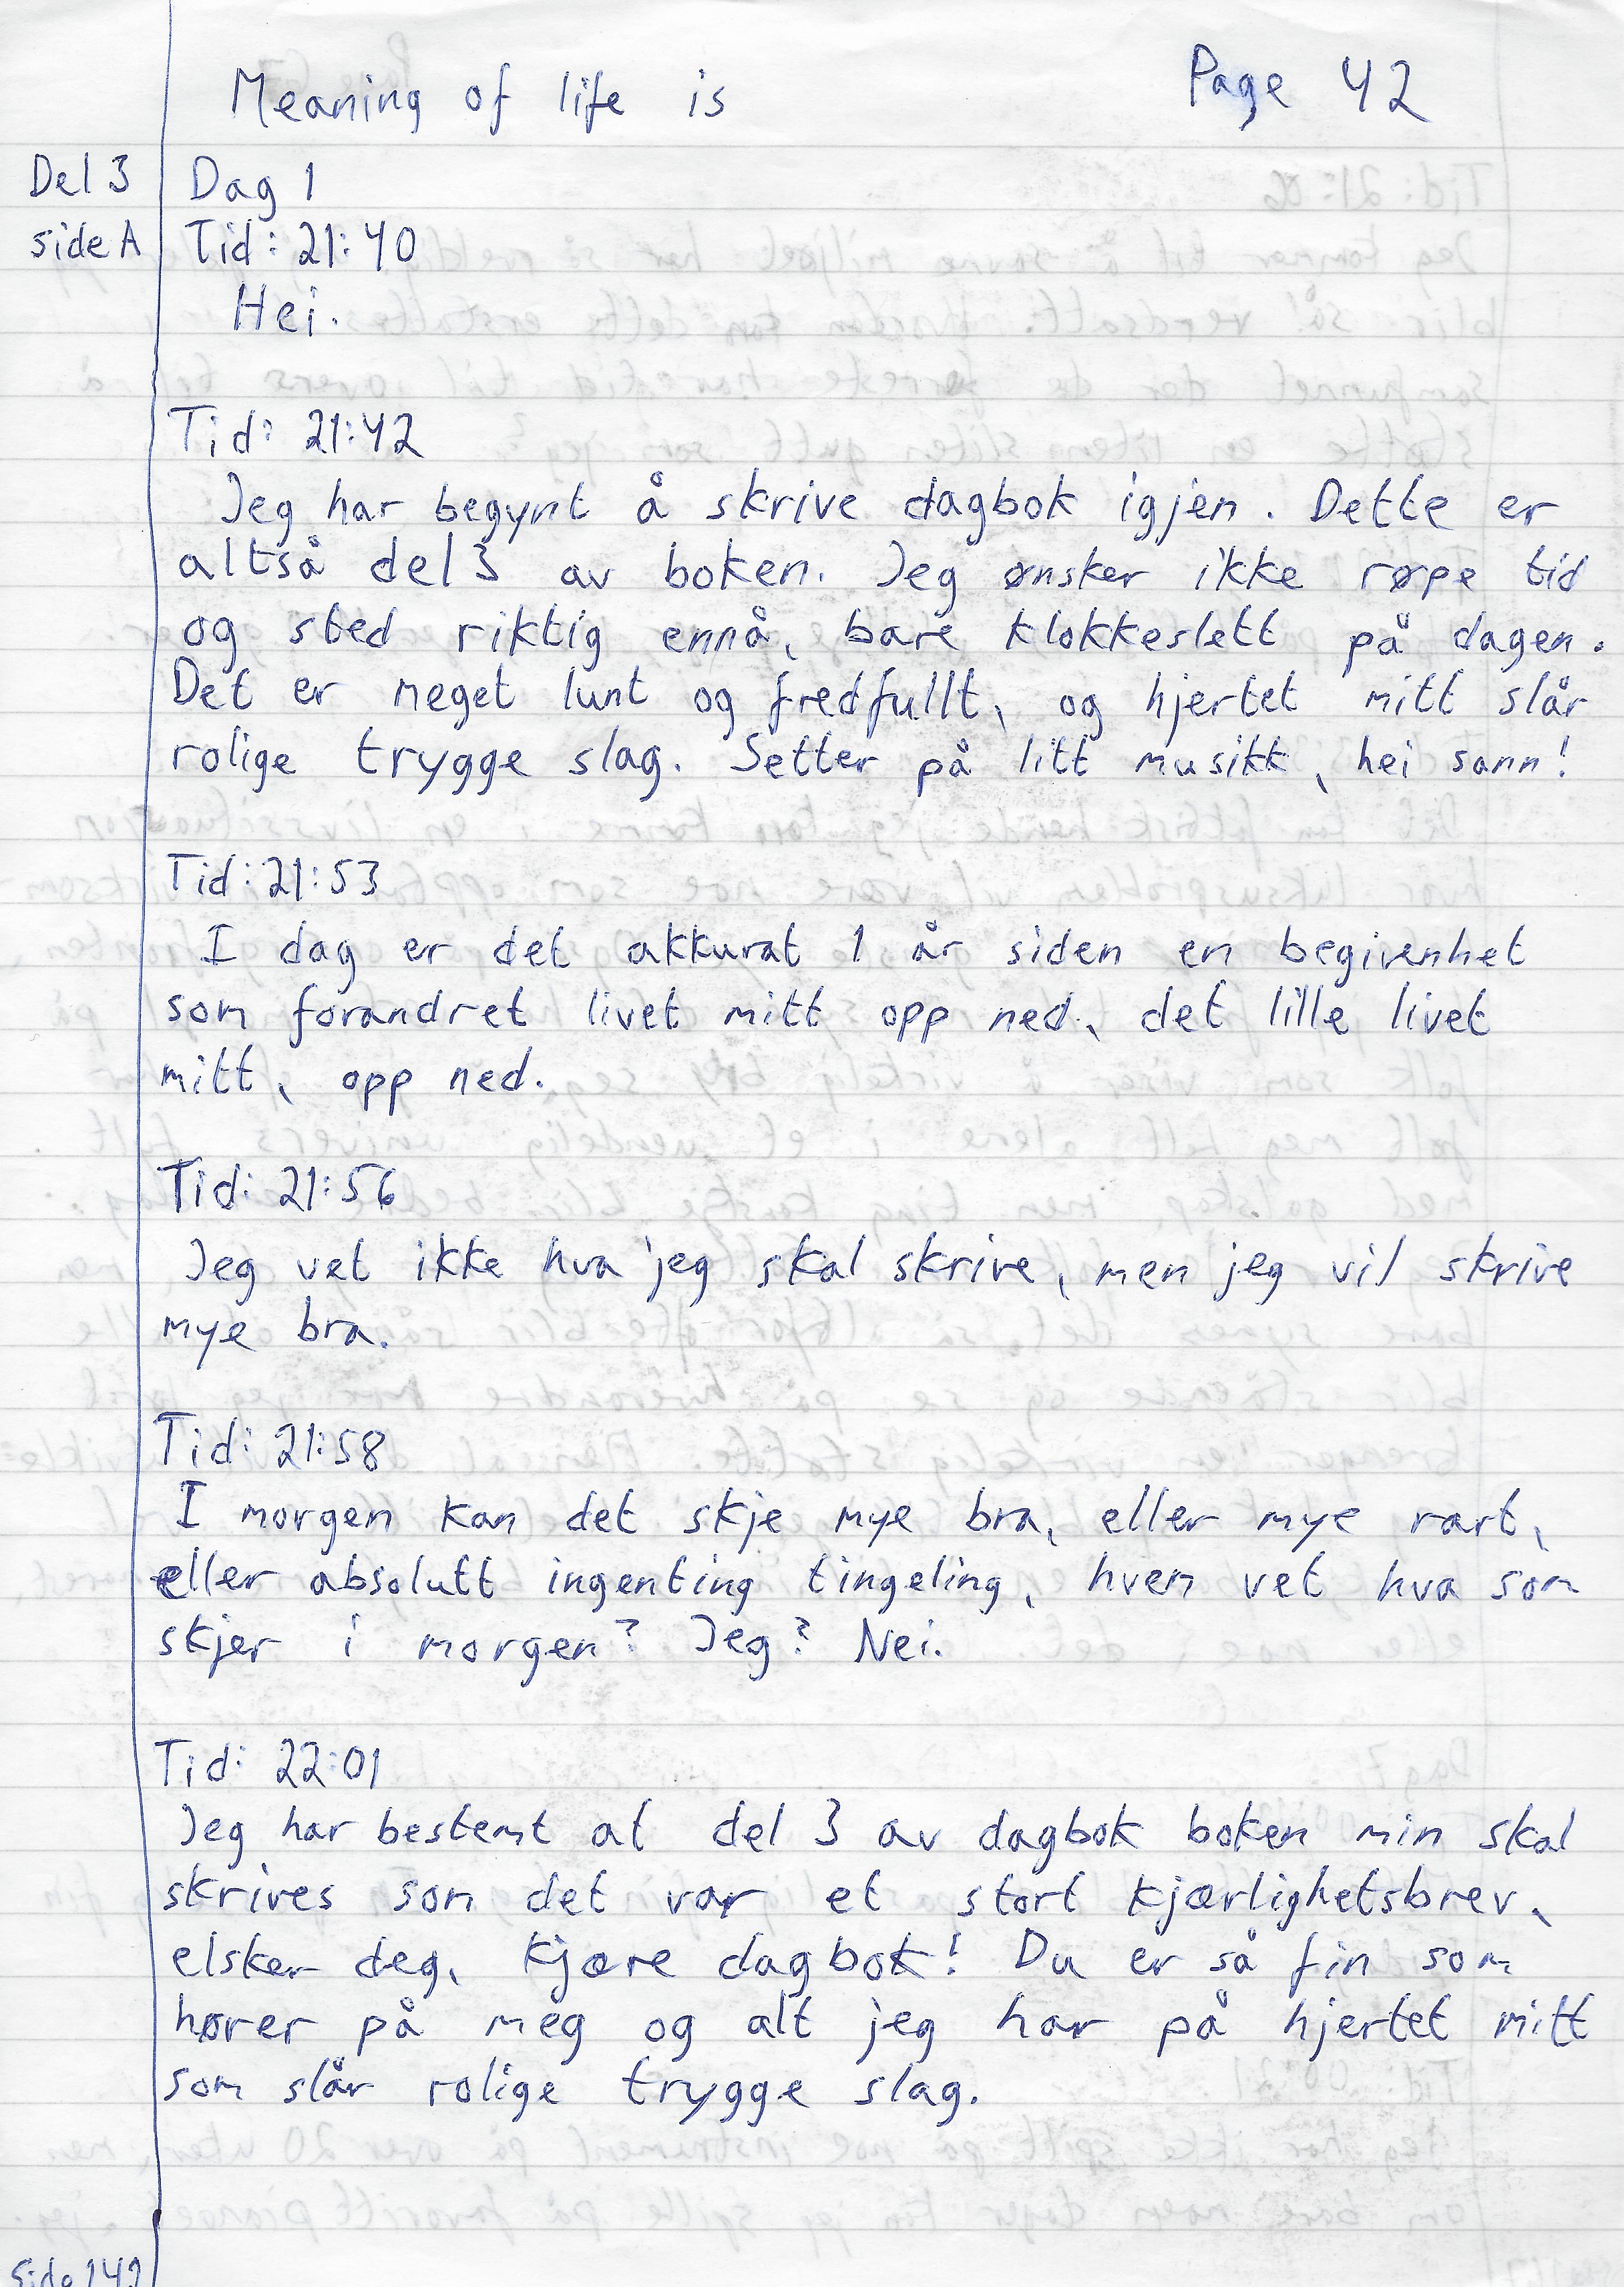 Meaning of life is Page 42
Del 3 Dag 1
side A Tid: 21:40
Hei.
Tid: 21:42
Jeg har begynt å skrive dagbok igjen. Dette er
altså del 3 av boken. Jeg ønsker ikke røpe tid
og sted riktig ennå, bare klokkeslett på dagen.
Det er meget lunt og fredfullt, og hjertet mitt slår
rolige trygge slag. Setter på litt musikk, hei sann!
Tid: 21:53
I dag er det akkurat 1 år siden en begivenhet
som forandret livet mitt opp ned, det lille livet
mitt, opp ned.
Tid: 21:56
Jeg vet ikke hva jeg skal skrive, men jeg vil skrive
mye bra.
Tid: 21:58
I morgen kan det skje mye bra, eller mye rart,
eller absolutt ingenting tingeling, hvem vet hva som
skjer i morgen? Jeg? Nei.
Tid: 22:01
Jeg har bestemt at del 3 av dagbok boken min skal
skrives som det var et stort kjærlighetsbrev,
elsker deg, kjære dagbok! Du er så fin som
hører på meg og alt jeg har på hjertet mitt
som slår rolige trygge slag.